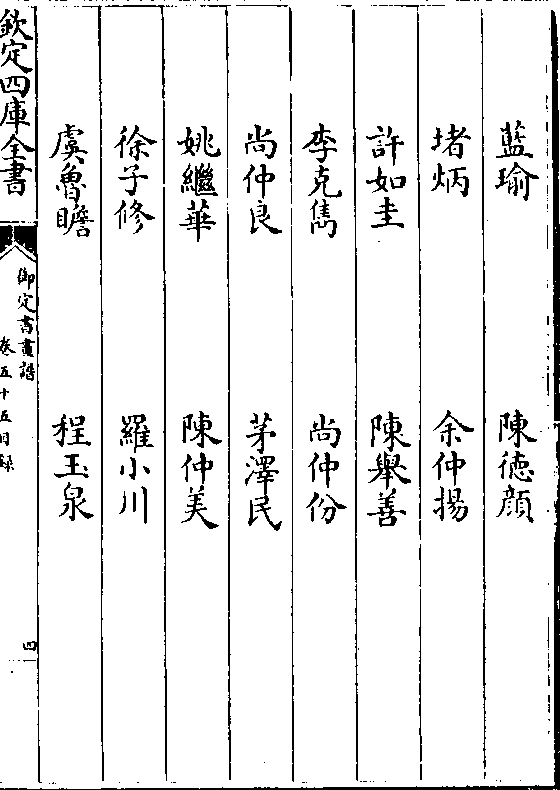 藍瑜 陳徳顔
堵炳 余仲揚
許如圭 陳舉善
李克雋 尚仲份
尚仲良 茅澤民
姚繼華 陳仲美
徐子修 羅小川
虞魯瞻 程玉泉
欽定四庫全書
御定書畫譜
卷五十五目録
四